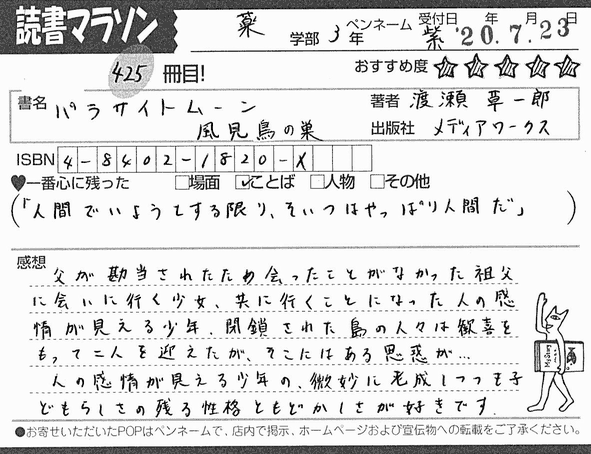 読書マラソン
薬 学部 3年 ペンネーム 紫 受付日 '20.年7.月23日
425 冊目!
おすすめ度 ☆☆☆☆☆
書名 パラサイトムーン
風見鳥の巣
著者 渡瀬草一郎
出版社 メディアワークス
ISBN 4-8402-1820-X
♥一番心に残った □場面 ☑ことば □人物 □その他
(「人間でいようとする限り、そいつはやっぱり人間だ」)
感想
父が勘当されたため会ったことがなかった祖父
に会いに行く少女、共に行くことになった人の感
情が見える少年、閉鎖された島の人々は歓喜を
もって二人を迎えたが、そこにはある思惑が…
人の感情が見える少年の、微妙に老成しつつも子
どもらしさの残る性格ともどかしさが好きです.
●お寄せいただいたPOPはペンネームで、店内で掲示、ホームページおよび宣伝物への転載をご了承ください。